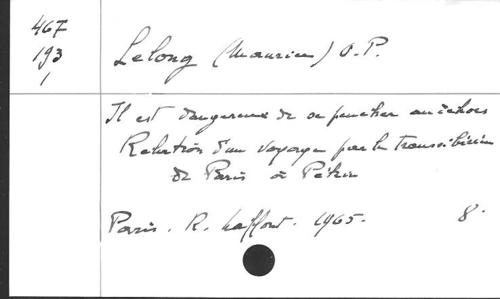 467
193
1
Lelong (Maurice) O.P.
Il est dangereux de se pencher au dehors
Relation d'un voyage par le transsibérien
de Paris à Pékin
Paris. R. Laffont. 1965. 8.